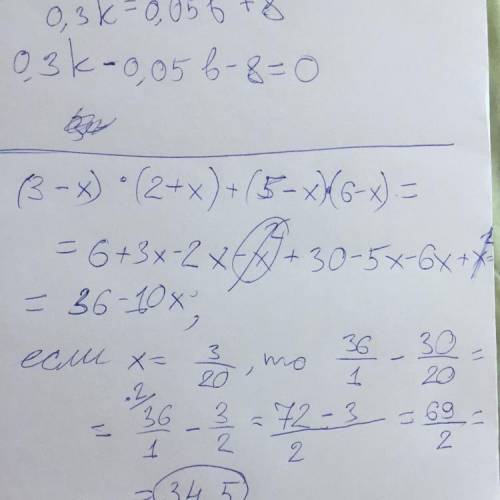 0,3k = 0,05b + 8
0,3k - 0,05b - 8 = 0
(3 - x) · (2 + x) + (5 - x)·(6 - x) =
= 6 + 3x - 2x - x² + 30 - 5x - 6x + x² =
= 36 - 10x;
если x = 3/20, то 36/1 - 30/20 =
= 36/1 ·2/ - 3/2 = (72 - 3)/2 = 69/2 =
= 34,5